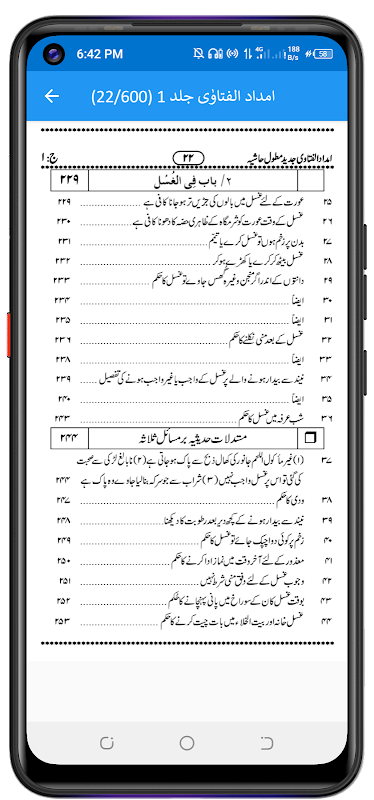 6:42 PM 4G 188 B/s 58
امداد الفتاوٰی جلد 1 (22/600)
امداد الفتاوی جدید مطول حاشیہ ۲۲ ج: ۱
۲/ باب فِی الغُسل ۲۲۹
۲۵ عورت کے لئے غسل میں بالوں کی جڑیں تر ہو جانا کافی ہے ۲۲۹
۲۶ غسل کے وقت عورت کو شرمگاہ کے ظاہری حصہ کا دھونا کافی ہے ۲۳۰
۲۷ بدن پر زخم ہوں تو غسل کرے یا تیمّم ۲۳۱
۲۸ غسل بیٹھ کر کرے یا کھڑے ہو کر ۲۳۲
۲۹ دانتوں کے اندر اگر منجن وغیرہ گھس جاوے تو غسل کا حکم ۲۳۳
۳۰ ایضاً ۲۳۴
۳۱ ایضاً ۲۳۵
۳۲ غسل کے بعد منی نکلنے کا حکم ۲۳۶
۳۳ ایضاً ۲۳۸
۳۴ نیند سے بیدار ہونے والے پر غسل کے واجب یا غیر واجب ہونے کی تفصیل ۲۳۹
۳۵ ایضاً ۲۴۰
۳۶ شب عرفہ میں غسل کا حکم ۲۴۳
مستدلات حدیثیہ بر مسائل ثلاثہ ۲۴۴
۳۷ (۱) غیر ماکول اللحم جانور کی کھال ذبح سے پاک ہو جاتی ہے (۲) نابالغ لڑکی سے صحبت
کی گئی تو اس پر غسل واجب نہیں (۳) شراب سے جو سرکہ بنا لیا جاوے وہ پاک ہے ۲۴۴
۳۸ ودی کا حکم ۲۴۷
۳۹ نیند سے بیدار ہونے کے کچھ دیر بعد رطوبت کا دیکھنا ۲۴۸
۴۰ زخم پر کوئی دوا چپک جائے تو غسل کا حکم ۲۴۹
۴۱ معذور کے لئے آخر وقت میں نماز ادا کرنے کا حکم ۲۵۰
۴۲ وجوب غسل کے لئے دفق منی شرط نہیں ۲۵۱
۴۳ بوقت غسل کان کے سوراخ میں پانی پہنچانے کا حکم ۲۵۲
۴۴ غسل خانہ اور بیت الخلاء میں بات چیت کرنے کا حکم ۲۵۳